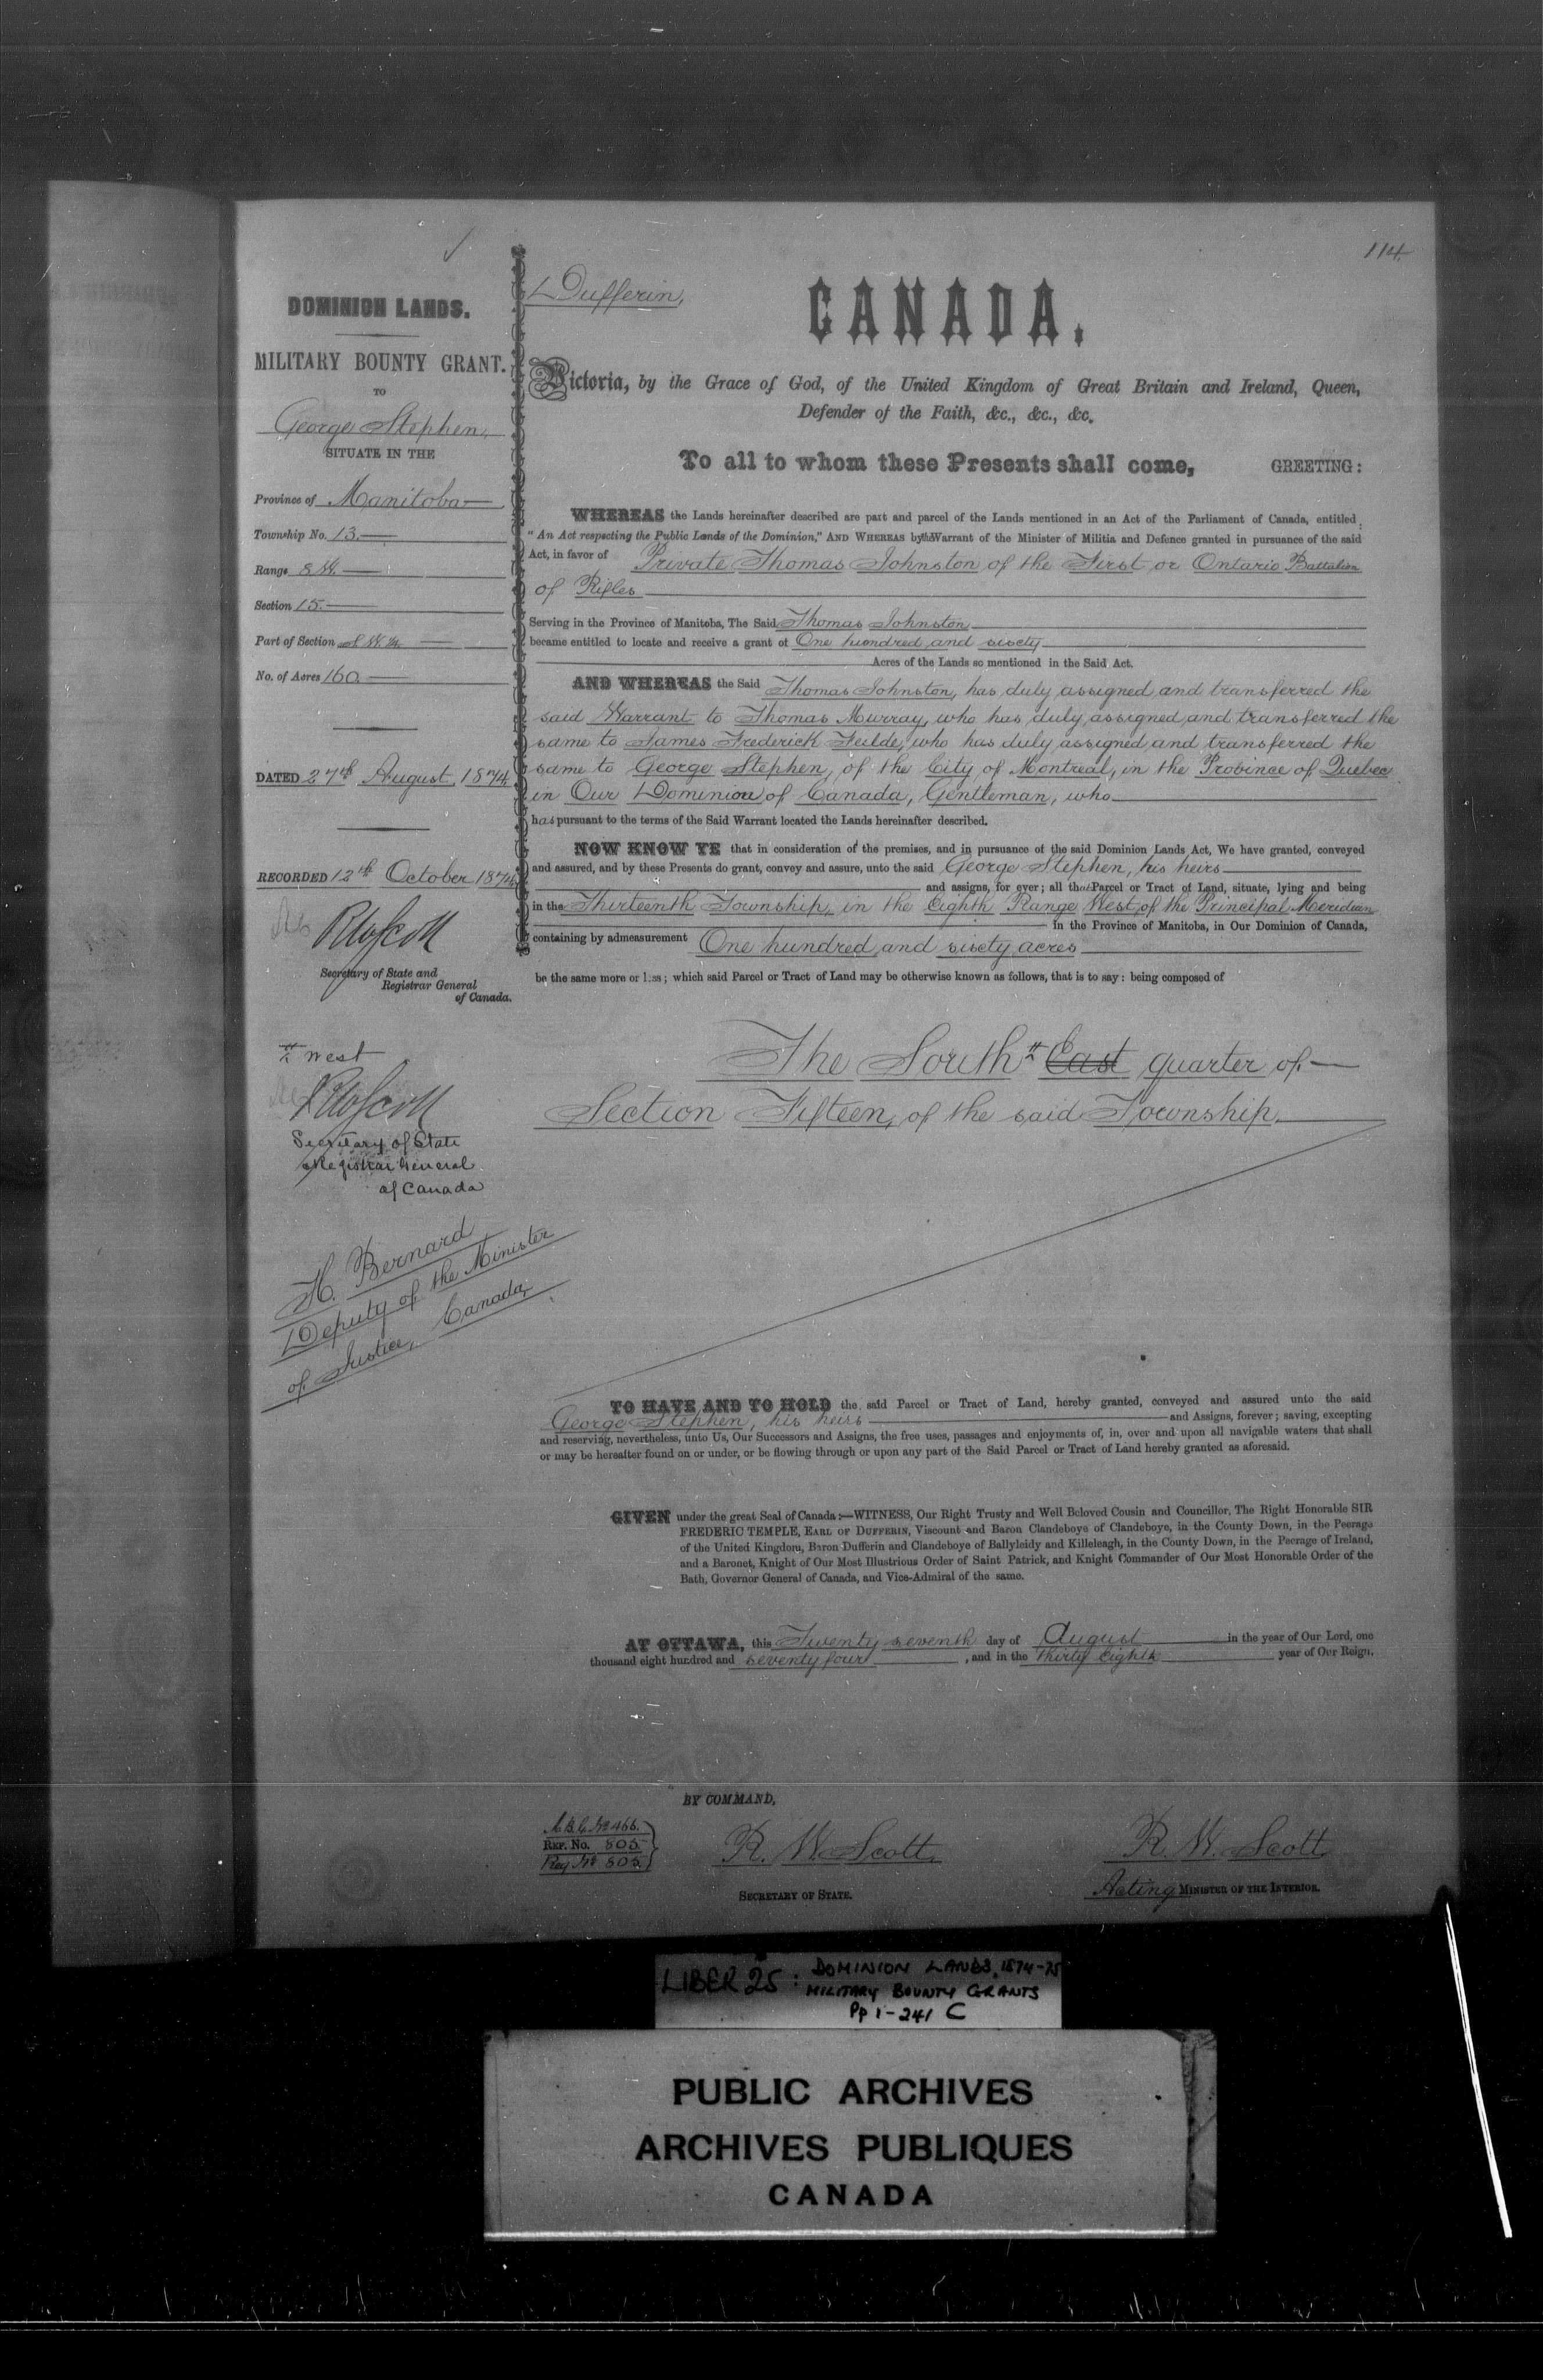 114
DOMINION LANDS.
MILITARY BOUNTY GRANT.
TO
George Stephen,
SITUATE IN THE
Province of Manitoba
Township No. 13.
Range 8 W.
Section 15.
Part of Section S W 1/4.
No. of Acres 160.
DATED 27th August, 1874
RECORDED 12th October 1874
RWScott
Secretary of State and
Registrar General
of Canada.
west
RWScott
Secretary of State
& Registrar General
of Canada
H. Bernard
Deputy of the Minister
of Justice, Canada,
Dufferin,
CANADA.
Victoria, by the Grace of God, of the United Kingdom of Great Britain and Ireland, Queen,
Defender of the Faith, &c., &c., &c.
To all to whom these Presents shall come, GREETING:
WHEREAS the Lands hereinafter described are part and parcel of the Lands mentioned in an Act of the Parliament of Canada, entitled
"An Act respecting the Public Lands of the Dominion," AND WHEREAS by the Warrant of the Minister of Militia and Defence granted in pursuance of the said
Act, in favor of Private Thomas Johnston of the First or Ontario Battalion
of Rifles
Serving in the Province of Manitoba, The Said Thomas Johnston
became entitled to locate and receive a grant of One hundred and sixty
Acres of the Lands so mentioned in the Said Act.
AND WHEREAS the Said Thomas Johnston, has duly assigned and transferred the
said Warrant to Thomas Murray, who has duly assigned and transferred the
same to James Frederick Feilde, who has duly assigned and transferred the
same to George Stephen, of the City of Montreal, in the Province of Quebec
in Our Dominion of Canada, Gentleman, who
has pursuant to the terms of the Said Warrant located the Lands hereinafter described.
NOW KNOW YE that in consideration of the premises, and in pursuance of the said Dominion Lands Act, We have granted, conveyed
and assured, and by these Presents do grant, convey and assure, unto the said George Stephen, his heirs
and assigns, for ever; all that Parcel or Tract of Land, situate, lying and being
in the Thirteenth Township, in the Eighth Range West of the Principal Meridian
in the Province of Manitoba, in Our Dominion of Canada,
containing by admeasurement One hundred and sixty acres
be the same more or less; which said Parcel or Tract of Land may be otherwise known as follows, that is to say: being composed of
The South East quarter of
Section Fifteen, of the said Township.
TO HAVE AND TO HOLD the said Parcel or Tract of Land, hereby granted, conveyed and assured unto the said
George Stephen, his heirs and Assigns, forever; saving, excepting
and reserving, nevertheless, unto Us, Our Successors and Assigns, the free uses, passages and enjoyments of, in, over and upon all navigable waters that shall
or may be hereafter found on or under, or be flowing through or upon any part of the Said Parcel or Tract of Land hereby granted as aforesaid.
GIVEN under the great Seal of Canada:—WITNESS, Our Right Trusty and Well Beloved Cousin and Councillor, The Right Honorable SIR
FREDERIC TEMPLE, EARL OF DUFFERIN, Viscount and Baron Clandeboye of Clandeboye, in the County Down, in the Peerage
of the United Kingdom, Baron Dufferin and Clandeboye of Ballyleidy and Killeleagh, in the County Down, in the Peerage of Ireland,
and a Baronet, Knight of Our Most Illustrious Order of Saint Patrick, and Knight Commander of Our Most Honorable Order of the
Bath, Governor General of Canada, and Vice-Admiral of the same.
AT OTTAWA, this Twenty seventh day of August in the year of Our Lord, one
thousand eight hundred and seventy four, and in the Thirty Eighth year of Our Reign.
BY COMMAND,
M.B.G. No 466.
REF. No. 805
Reg No 805.
R. W. Scott,
SECRETARY OF STATE.
R. W. Scott
Acting MINISTER OF THE INTERIOR.
LIBER 25: DOMINION LANDS, 1874-75
MILITARY BOUNTY GRANTS
Pp 1-241 C
PUBLIC ARCHIVES
ARCHIVES PUBLIQUES
CANADA